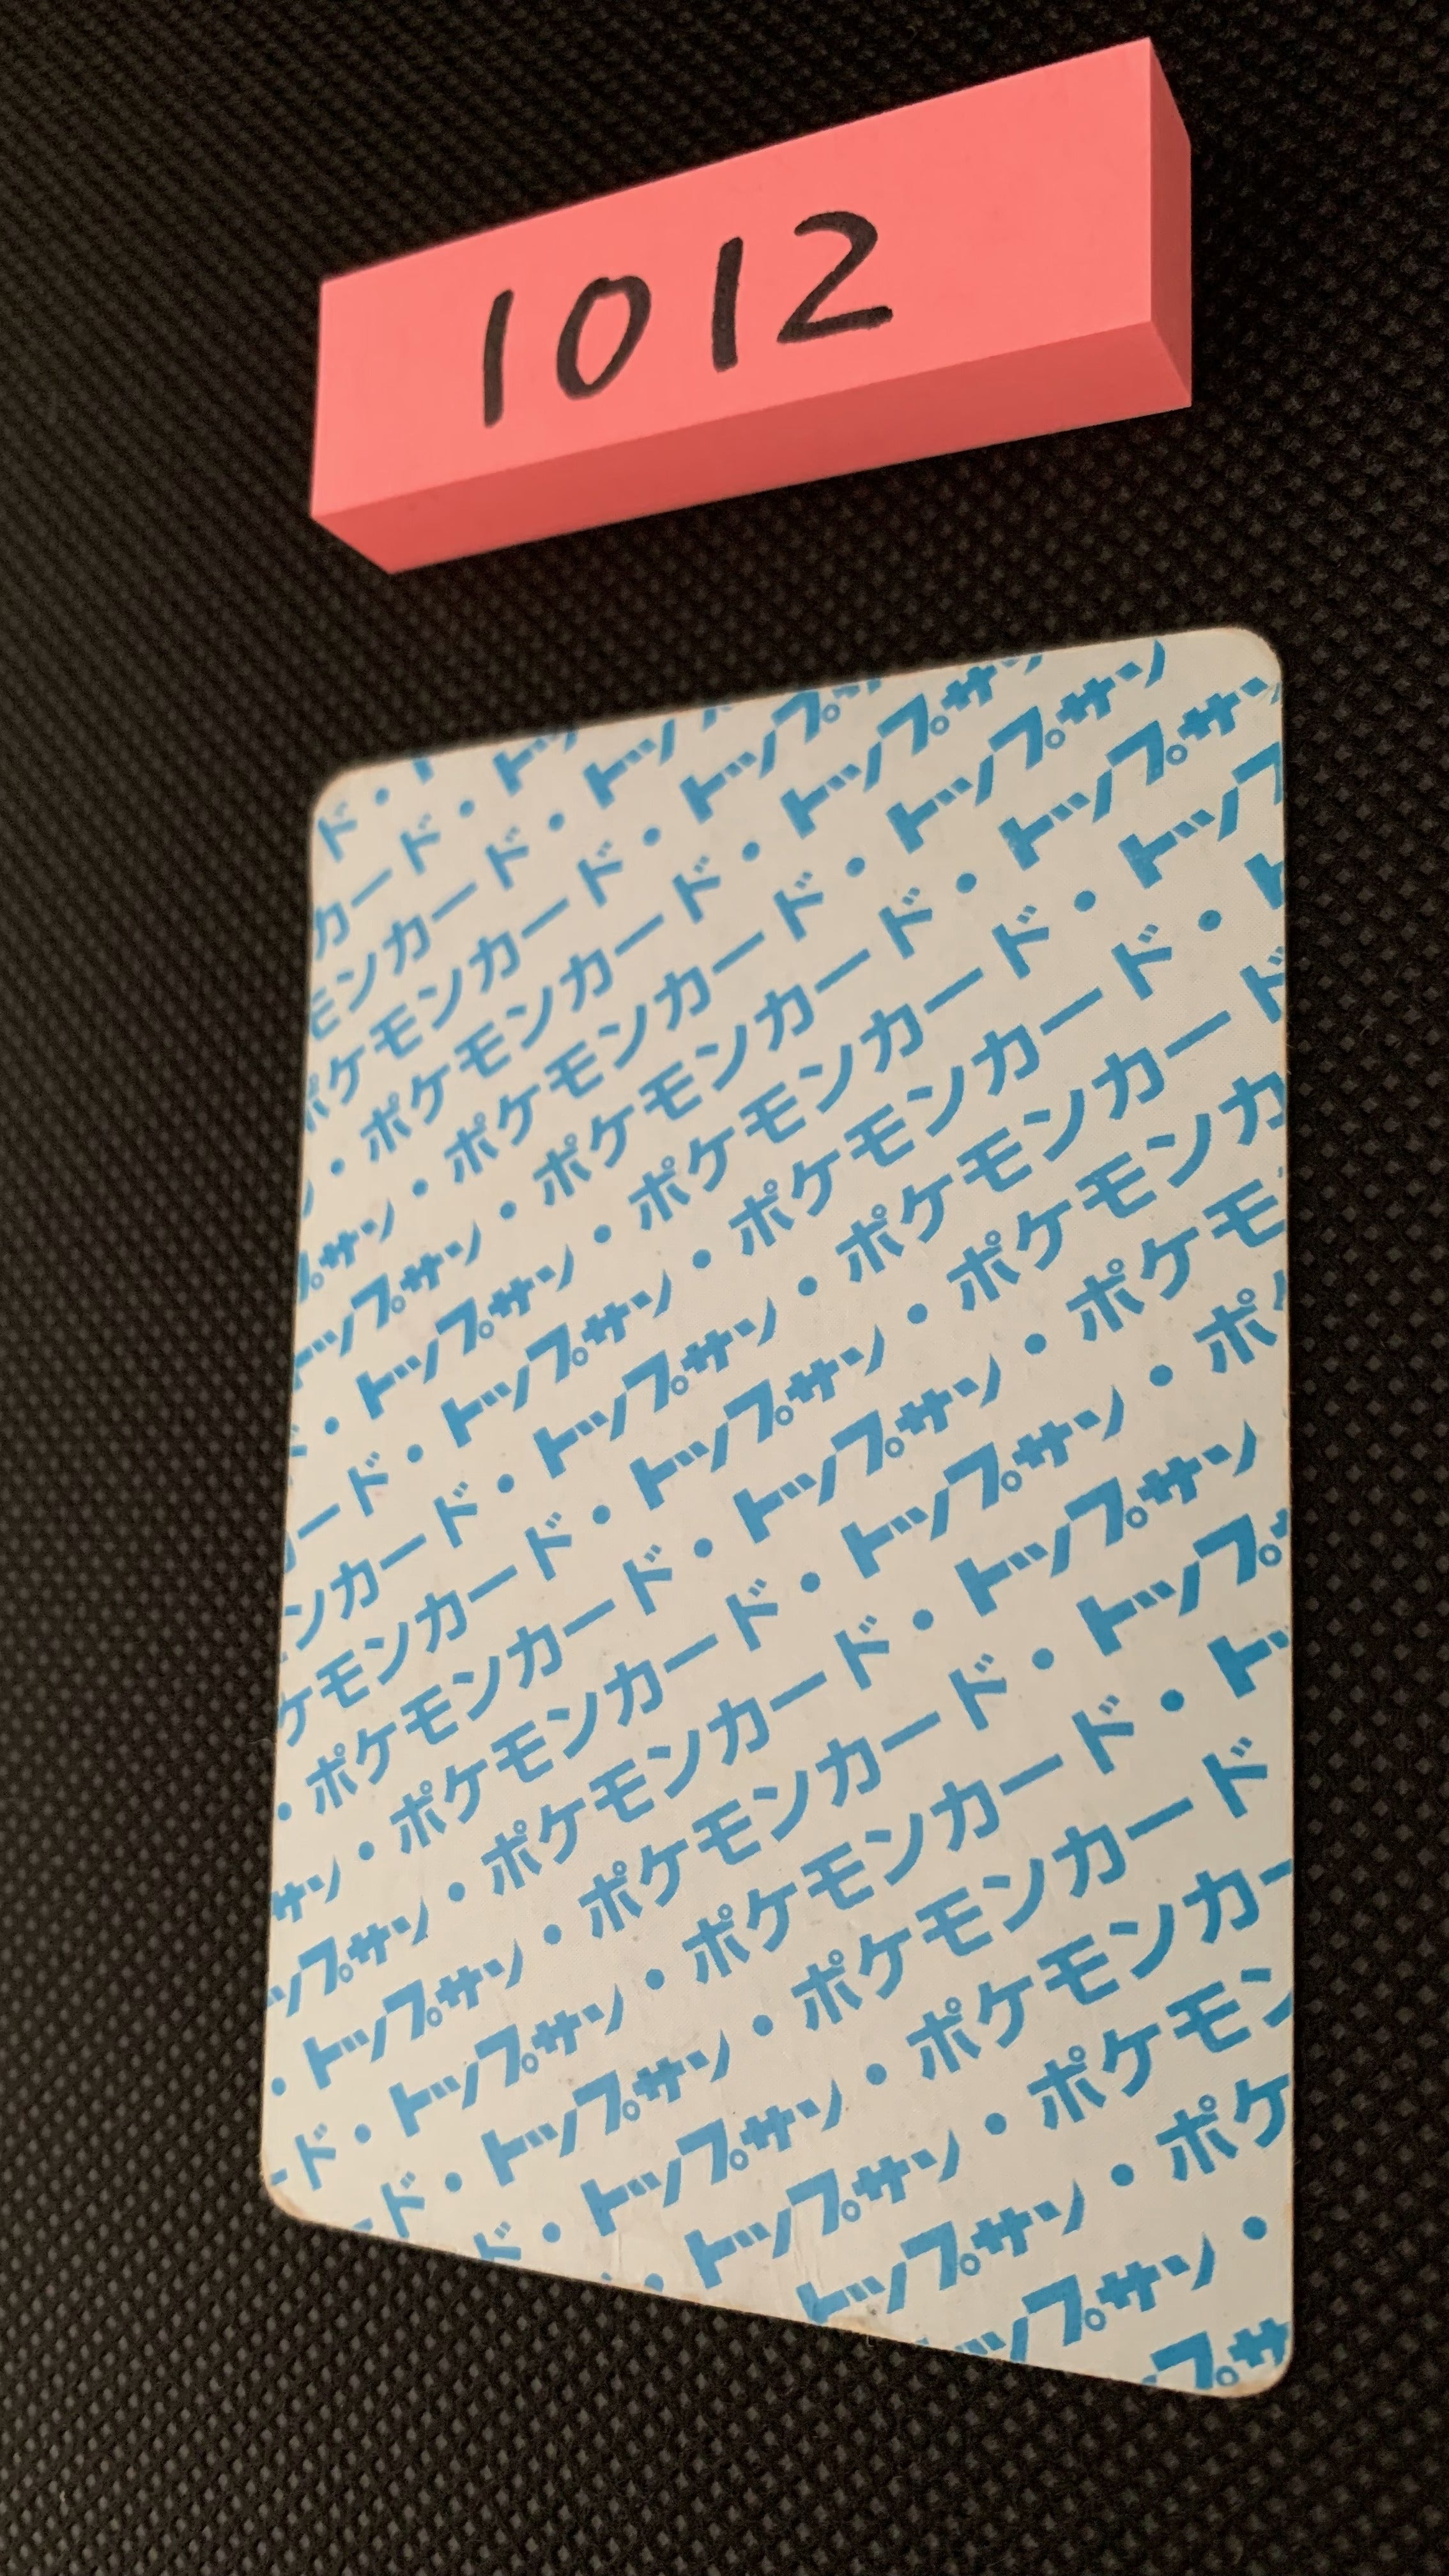 1012
ド・ト
カード・トッ
モンカード・トップ
ポケモンカード・トップサ
ン・ポケモンカード・トップサン
プサン・ポケモンカード・トップサン
トップサン・ポケモンカード・トップサン
・トップサン・ポケモンカード・トップ
ード・トップサン・ポケモンカード・ト
ンカード・トップサン・ポケモンカード
ケモンカード・トップサン・ポケモンカ
・ポケモンカード・トップサン・ポケモ
サン・ポケモンカード・トップサン・ポ
ップサン・ポケモンカード・トップサン
・トップサン・ポケモンカード・トップ
ード・トップサン・ポケモンカード・ト
ード・トップサン・ポケモンカード
ド・トップサン・ポケモンカー
・トップサン・ポケモン
トップサン・ポケ
ップサン・
プサ